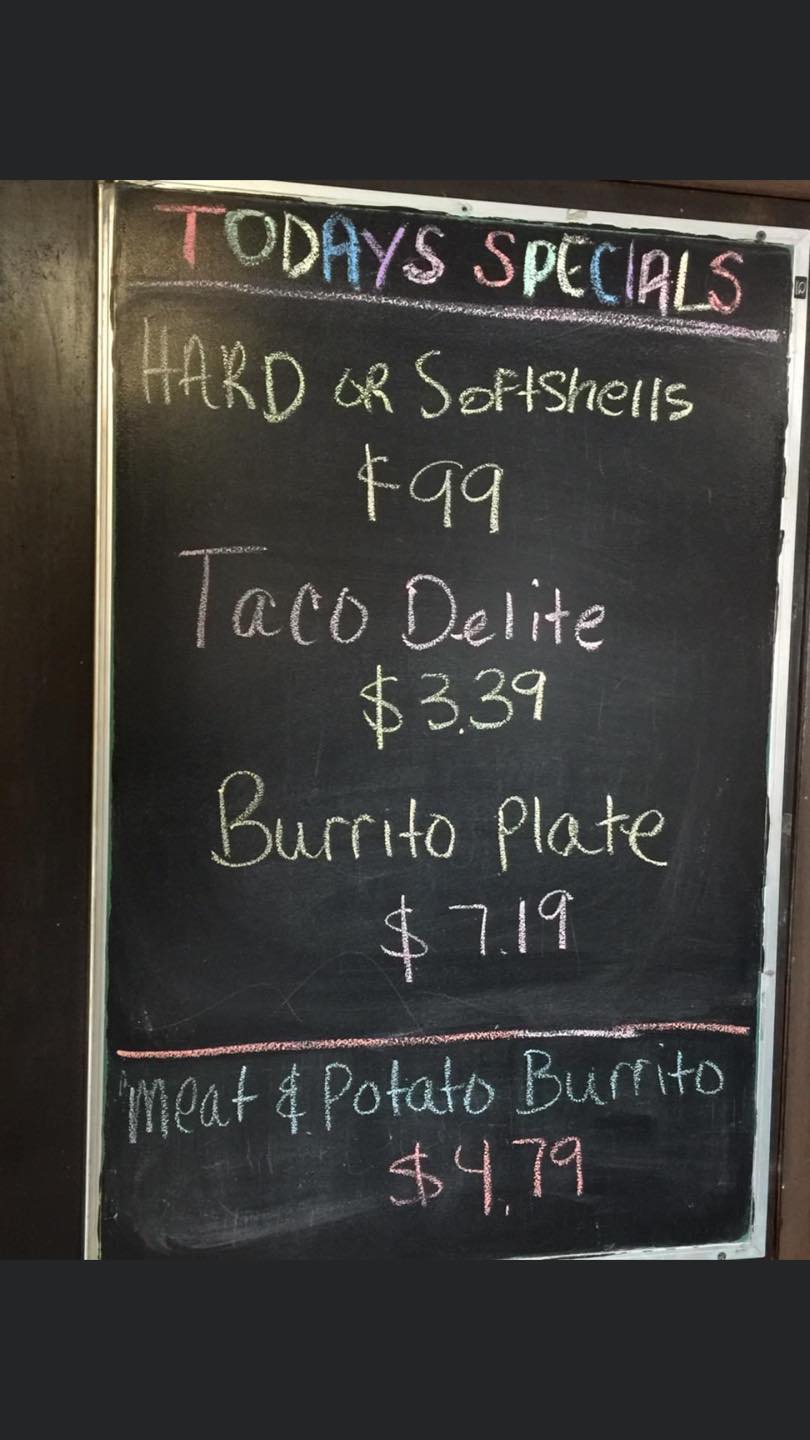 TODAYS SPECIALS
HARD OR SoftShells
¢99
Taco Delite
$3.39
Burrito plate
$7.19
Meat & Potato Burrito
$4.79